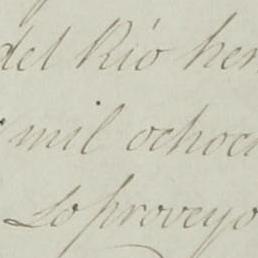 del Rio her
mil ochoci
Lo proveyo